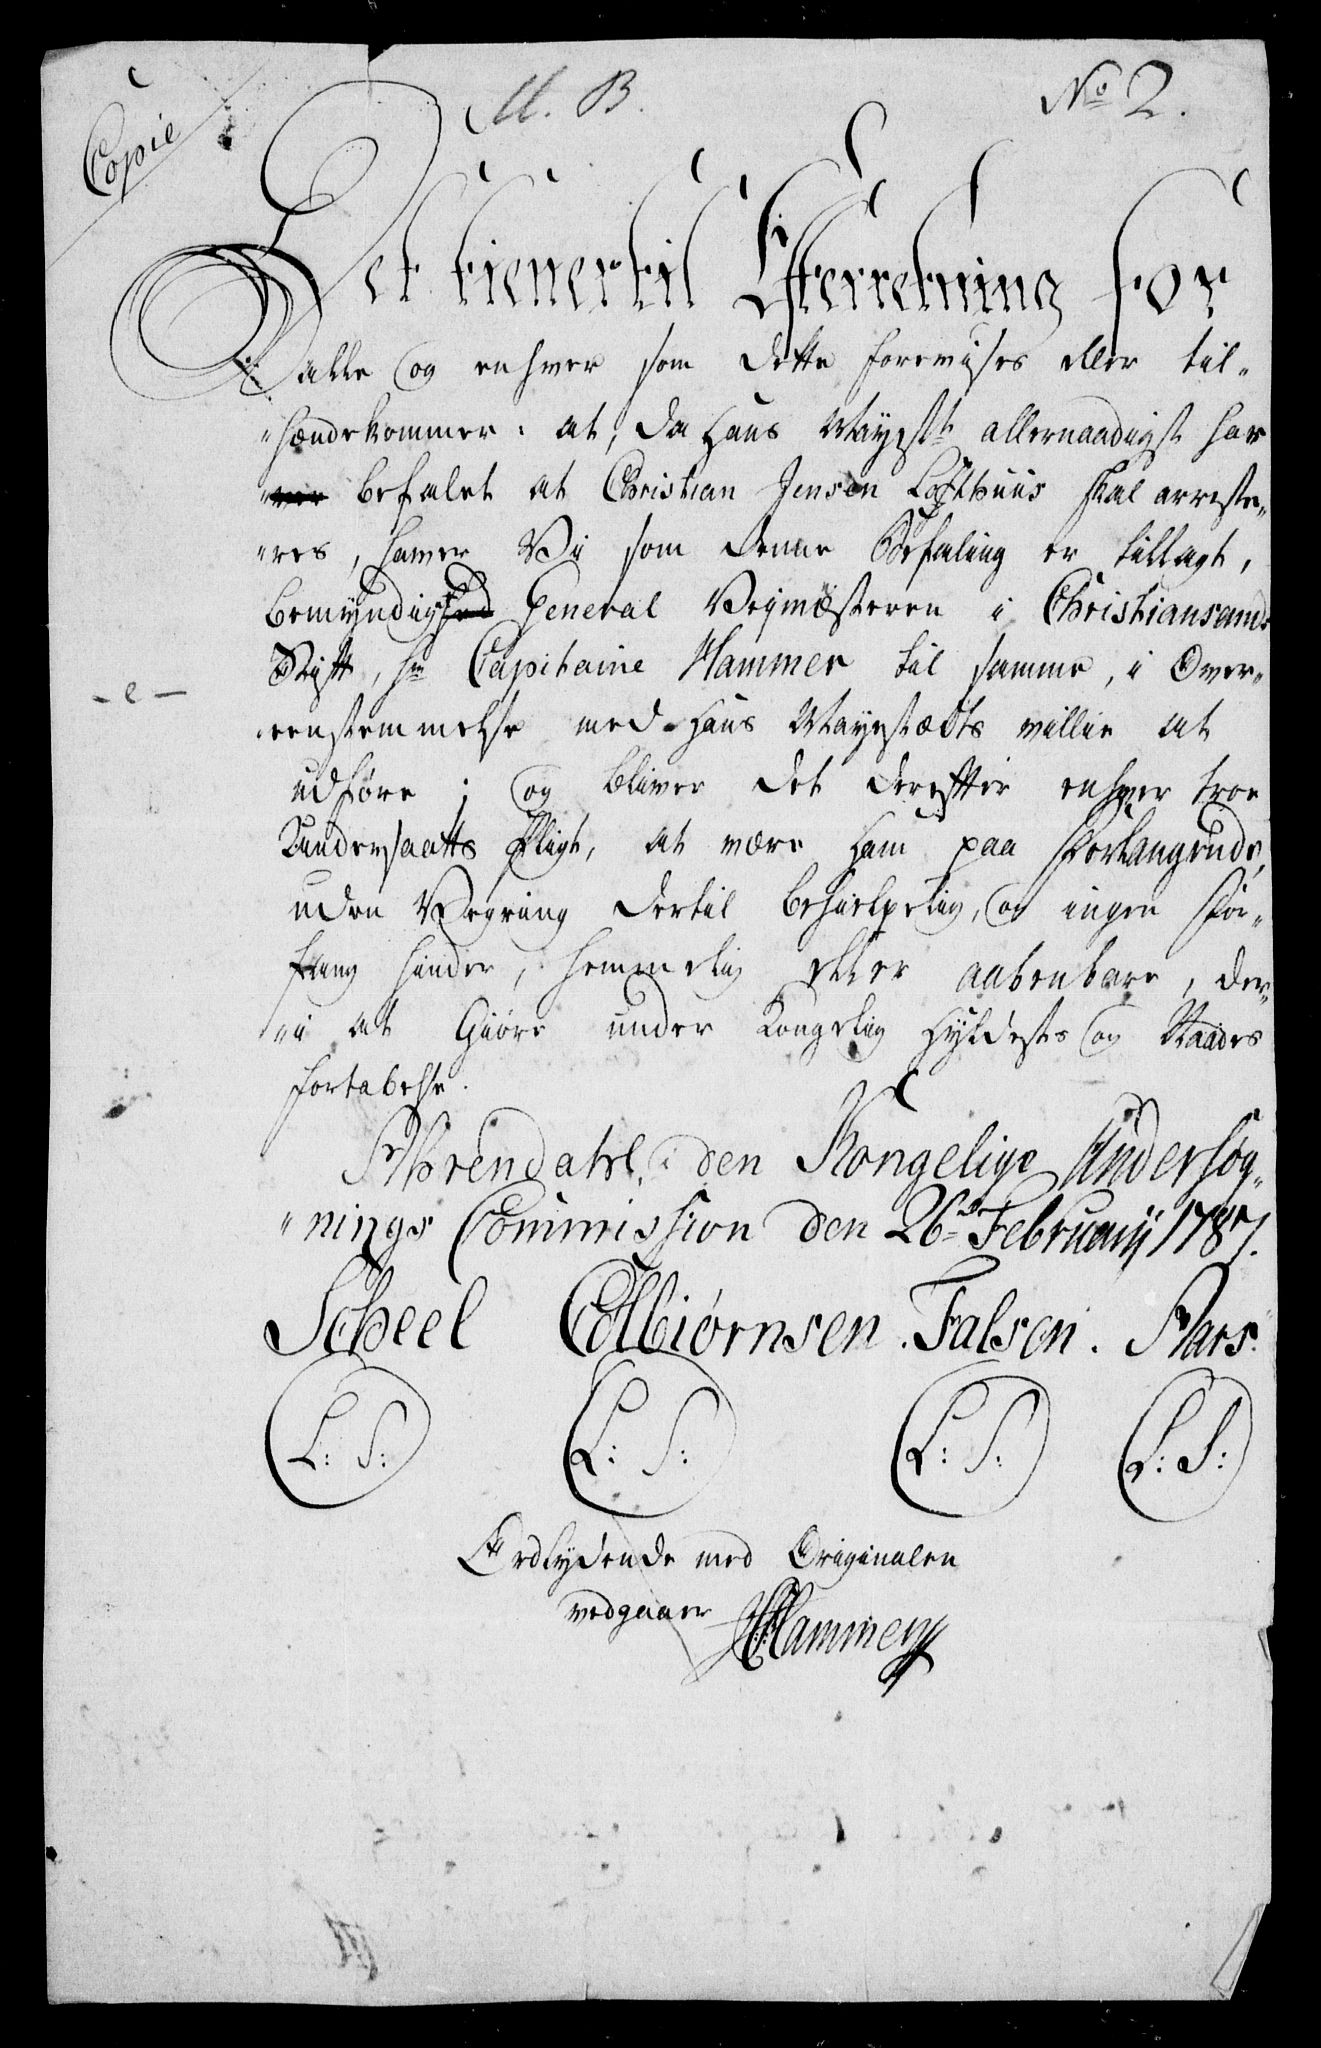 Copie
M. B.
No 2.
Det tiener til Efterretning for
alle og enhver som dette forevises eller til-
"hændekommer: at, da Hans Mayestt allernaadigst har
"ver befalet at Christian Jensen Lofthuus skal arreste-
"res, haver Vi som denne Befaling er tillagt,
bemyndighed General Veymæsteren i Christiansands
Stift, Hr Capitaine Hammer til samme, i Over-
"eenstemmelse med Hans Mayestædts villie at
-e-
udføre; og bliver det derefter enhver troe
Undersaatts Pligt, at være ham paa Forlangende,
uden Vegring dertil behielpelig, og ingen For-
fang hinder, hemmelig eller aabenbare, der-
"i at Giøre under Kongelig Hyldests og Naades
fortabelse.
Ahrendahl, i den Kongelige Undersøg-
"nings Commission den 26de Februarij 1787.
Scheel Colbiørnsen. Falsen. Aars.
L: S: L: S: L: S: L: S:
Ordlydende med Originalen
vedgaaer Hammer